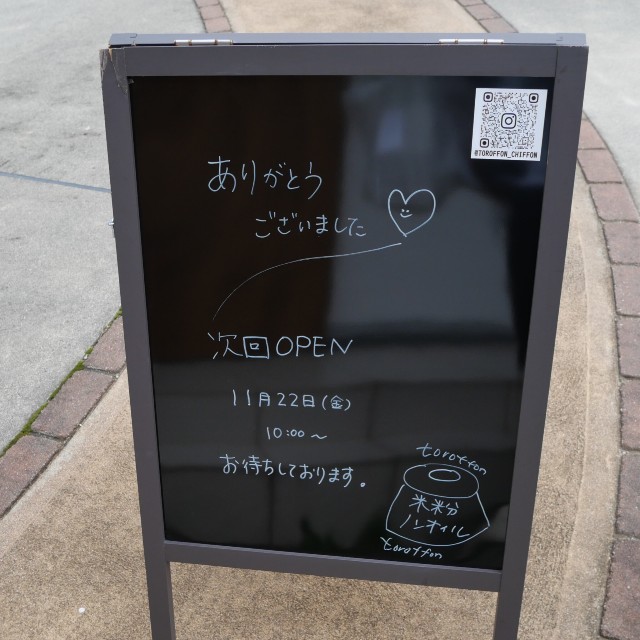 @TOROFFON_CHIFFON
ありがとう
ございました
次回OPEN
11月22日(金)
10:00〜
お待ちしております。
toroffon
米粉
ノンオイル
toroffon